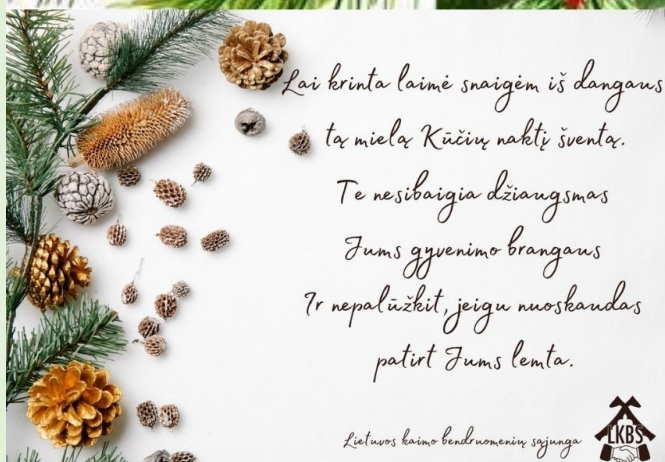 Lai krinta laimė snaigėm iš dangaus
tą mielą Kūčių naktį šventą.
Te nesibaigia džiaugsmas
Jums gyvenimo brangaus
Ir nepalūžkit, jeigu nuoskaudas
patirt Jums lemta.
Lietuvos kaimo bendruomenių sąjunga
LKBS